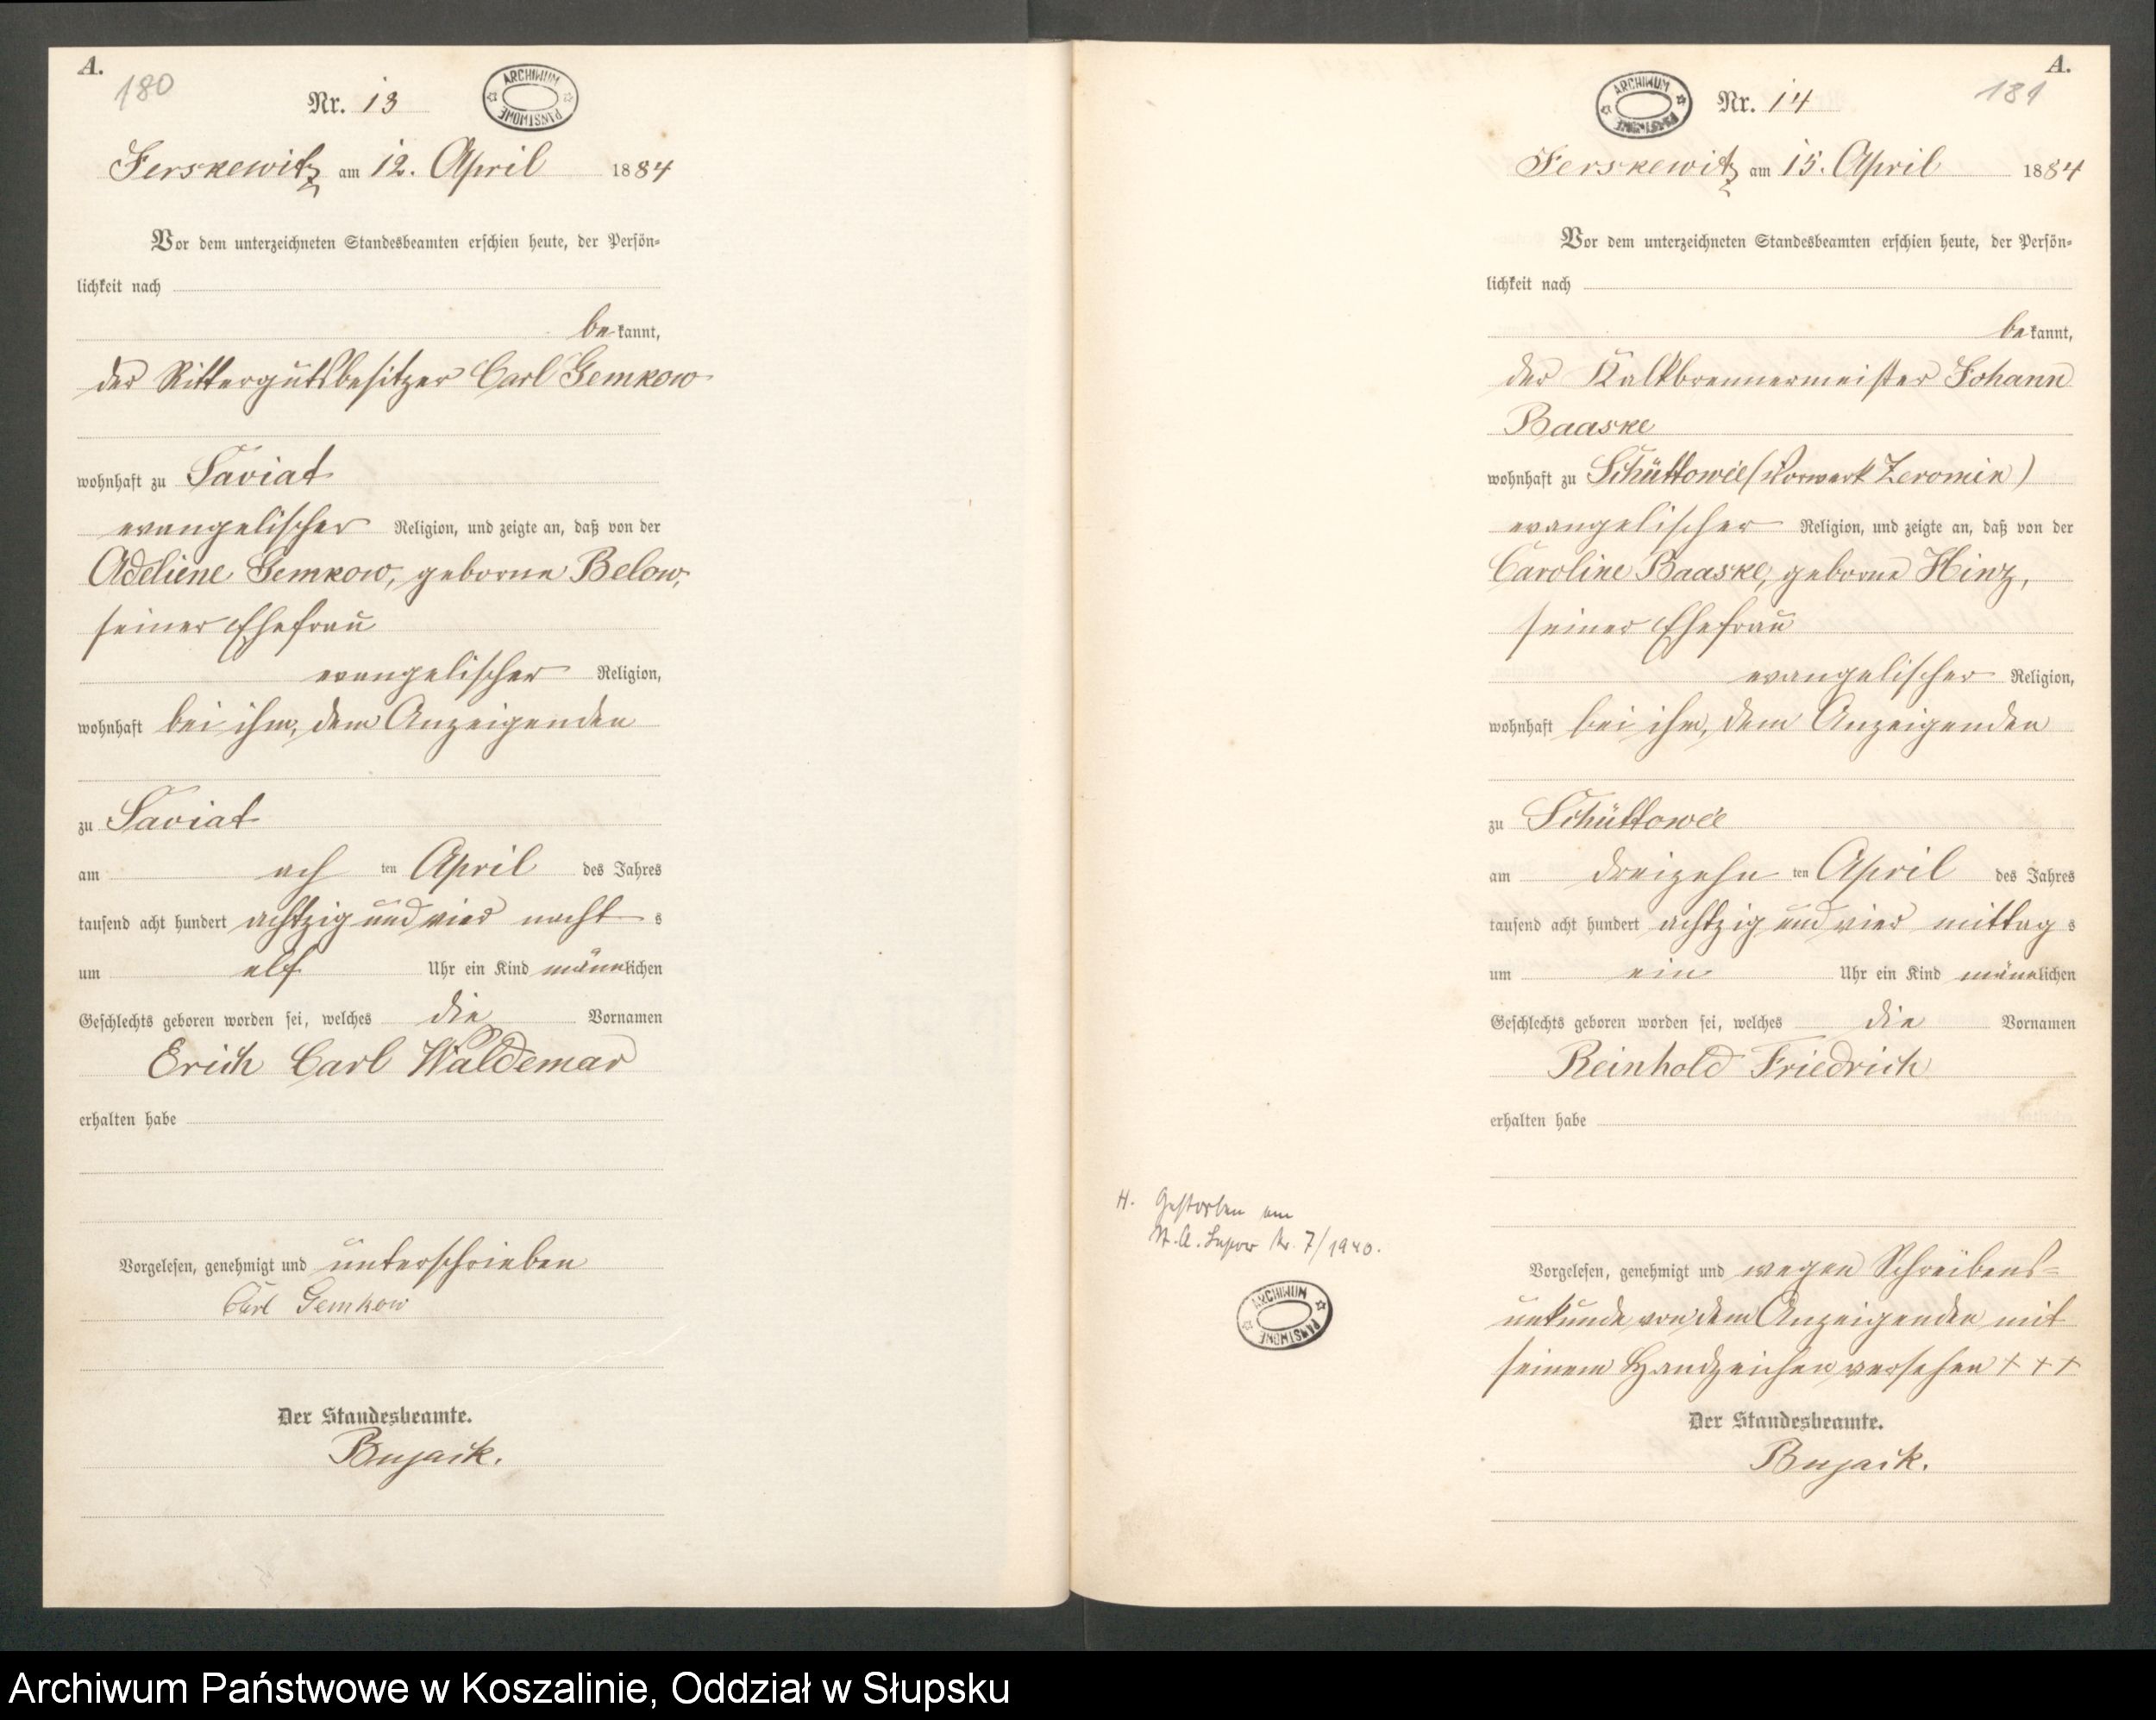 A.
180
Nr. 13
ARCHIWUM PAŃSTWOWE
Jerskewitz am 12. April 1884
Vor dem unterzeichneten Standesbeamten erschien heute, der Persön-
lichkeit nach
be kannt,
der Rittergutsbesitzer Carl Gemkow
wohnhaft zu Saviat
evangelischer Religion, und zeigte an, daß von der
Adeliene Gemkow, geborne Below,
seiner Ehefrau
evangelischer Religion,
wohnhaft bei ihm, dem Anzeigenden
zu Saviat
am ach ten April des Jahres
tausend acht hundert achtzig und vier nacht s
um elf Uhr ein Kind männlichen
Geschlechts geboren worden sei, welches die Vornamen
Erich Carl Waldemar
erhalten habe
Vorgelesen, genehmigt und unterschrieben
Carl Gemkow
Der Standesbeamte.
Bujack.
A.
181
ARCHIWUM PAŃSTWOWE
Nr. 14
Jerskewitz am 15. April 1884
Vor dem unterzeichneten Standesbeamten erschien heute, der Persön-
lichkeit nach
be kannt,
der Kalkbrennermeister Johann
Baaske
wohnhaft zu Schüttowée (Vorwerk Zeromin)
evangelischer Religion, und zeigte an, daß von der
Caroline Baaske, geborne Hinz,
seiner Ehefrau
evangelischer Religion,
wohnhaft bei ihm, dem Anzeigenden
zu Schüttowée
am dreizehn ten April des Jahres
tausend acht hundert achtzig und vier mittag s
um ein Uhr ein Kind männlichen
Geschlechts geboren worden sei, welches die Vornamen
Reinhold Friedrich
erhalten habe
Vorgelesen, genehmigt und wegen Schreibens-
unkunde von dem Anzeigenden mit
seinem Handzeichen versehen + + +
Der Standesbeamte.
Bujack.
H. Gestorben am
St. A. Lupow Nr. 7/1940.
ARCHIWUM PAŃSTWOWE
Archiwum Państwowe w Koszalinie, Oddział w Słupsku